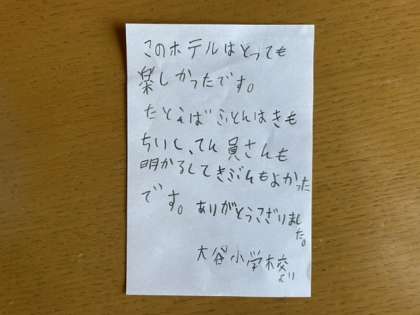 このホテルはとっても
楽しかったです。
たとえば ふとんはきも
ちいし、てん員さんも
明かるしてきぶんもよかった
です。ありがとうござりまし
た。
大谷小学校より